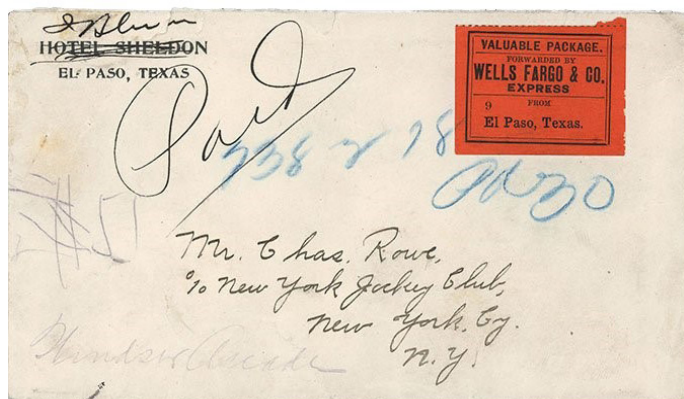 HOTEL SHELDON
EL PASO, TEXAS
VALUABLE PACKAGE.
FORWARDED BY
WELLS FARGO & CO.
EXPRESS
9 FROM
El Paso, Texas.
Paid
338 2 78
Pd 30
51
Mr. Chas. Rowe,
c/o New York Jockey Club,
New York. Cy.
N.Y.
Windsor Arcade